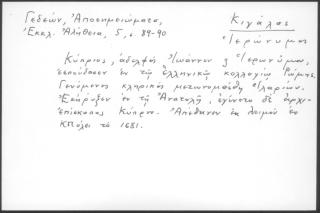 Γεδεών, Ἀποσημειώματα,
Ἐκκλ. Ἀλήθεια, 5, σ. 89-90
Κιγάλας
Ἱερώνυμος
Κύπριος, ἀδελφὸς Ἰωάννου Ἱερωνύμου,
ἐσπούδασεν ἐν τῷ ἑλληνικῷ κολλεγίῳ Ῥώμης.
Γενόμενος κληρικὸς μετωνομάσθη Ἱλαρίων.
Ἐκήρυξεν ἐν τῇ Ἀνατολῇ, ἐγένετο δὲ ἀρχι-
επίσκοπος Κύπρου. Ἀπέθανεν ἐκ λοιμοῦ ἐν
ΚΠόλει τὸ 1681.